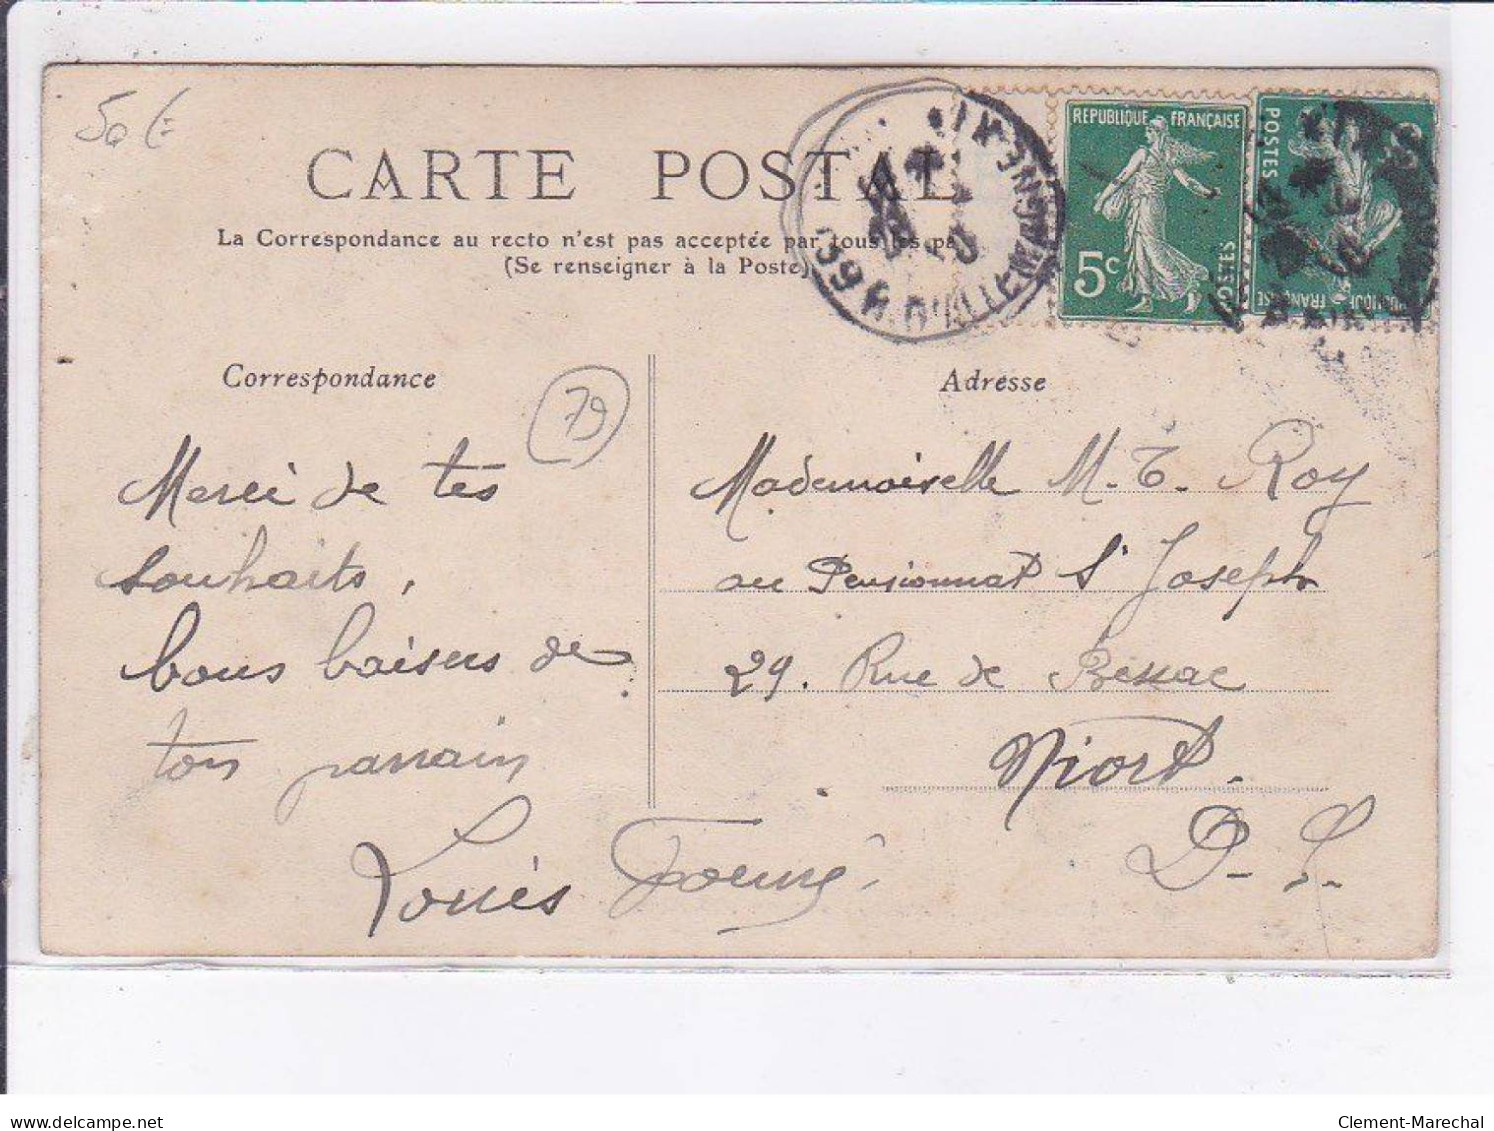 50 €
CARTE POSTALE
La Correspondance au recto n'est pas acceptée par tous les pa
(Se renseigner à la Poste)
RÉPUBLIQUE FRANÇAISE
5c
POSTES
POSTES
FRANÇAISE
R. D'ALLEMAGNE
Correspondance
79
Adresse
Merci de tes
souhaits,
bons baisers de
ton parrain
Louis
Mademoiselle M.T. Roy
au Pensionnat St Joseph
29. Rue de Bessac
Niort.
D.S.
delcampe.net
Clement-Marechal